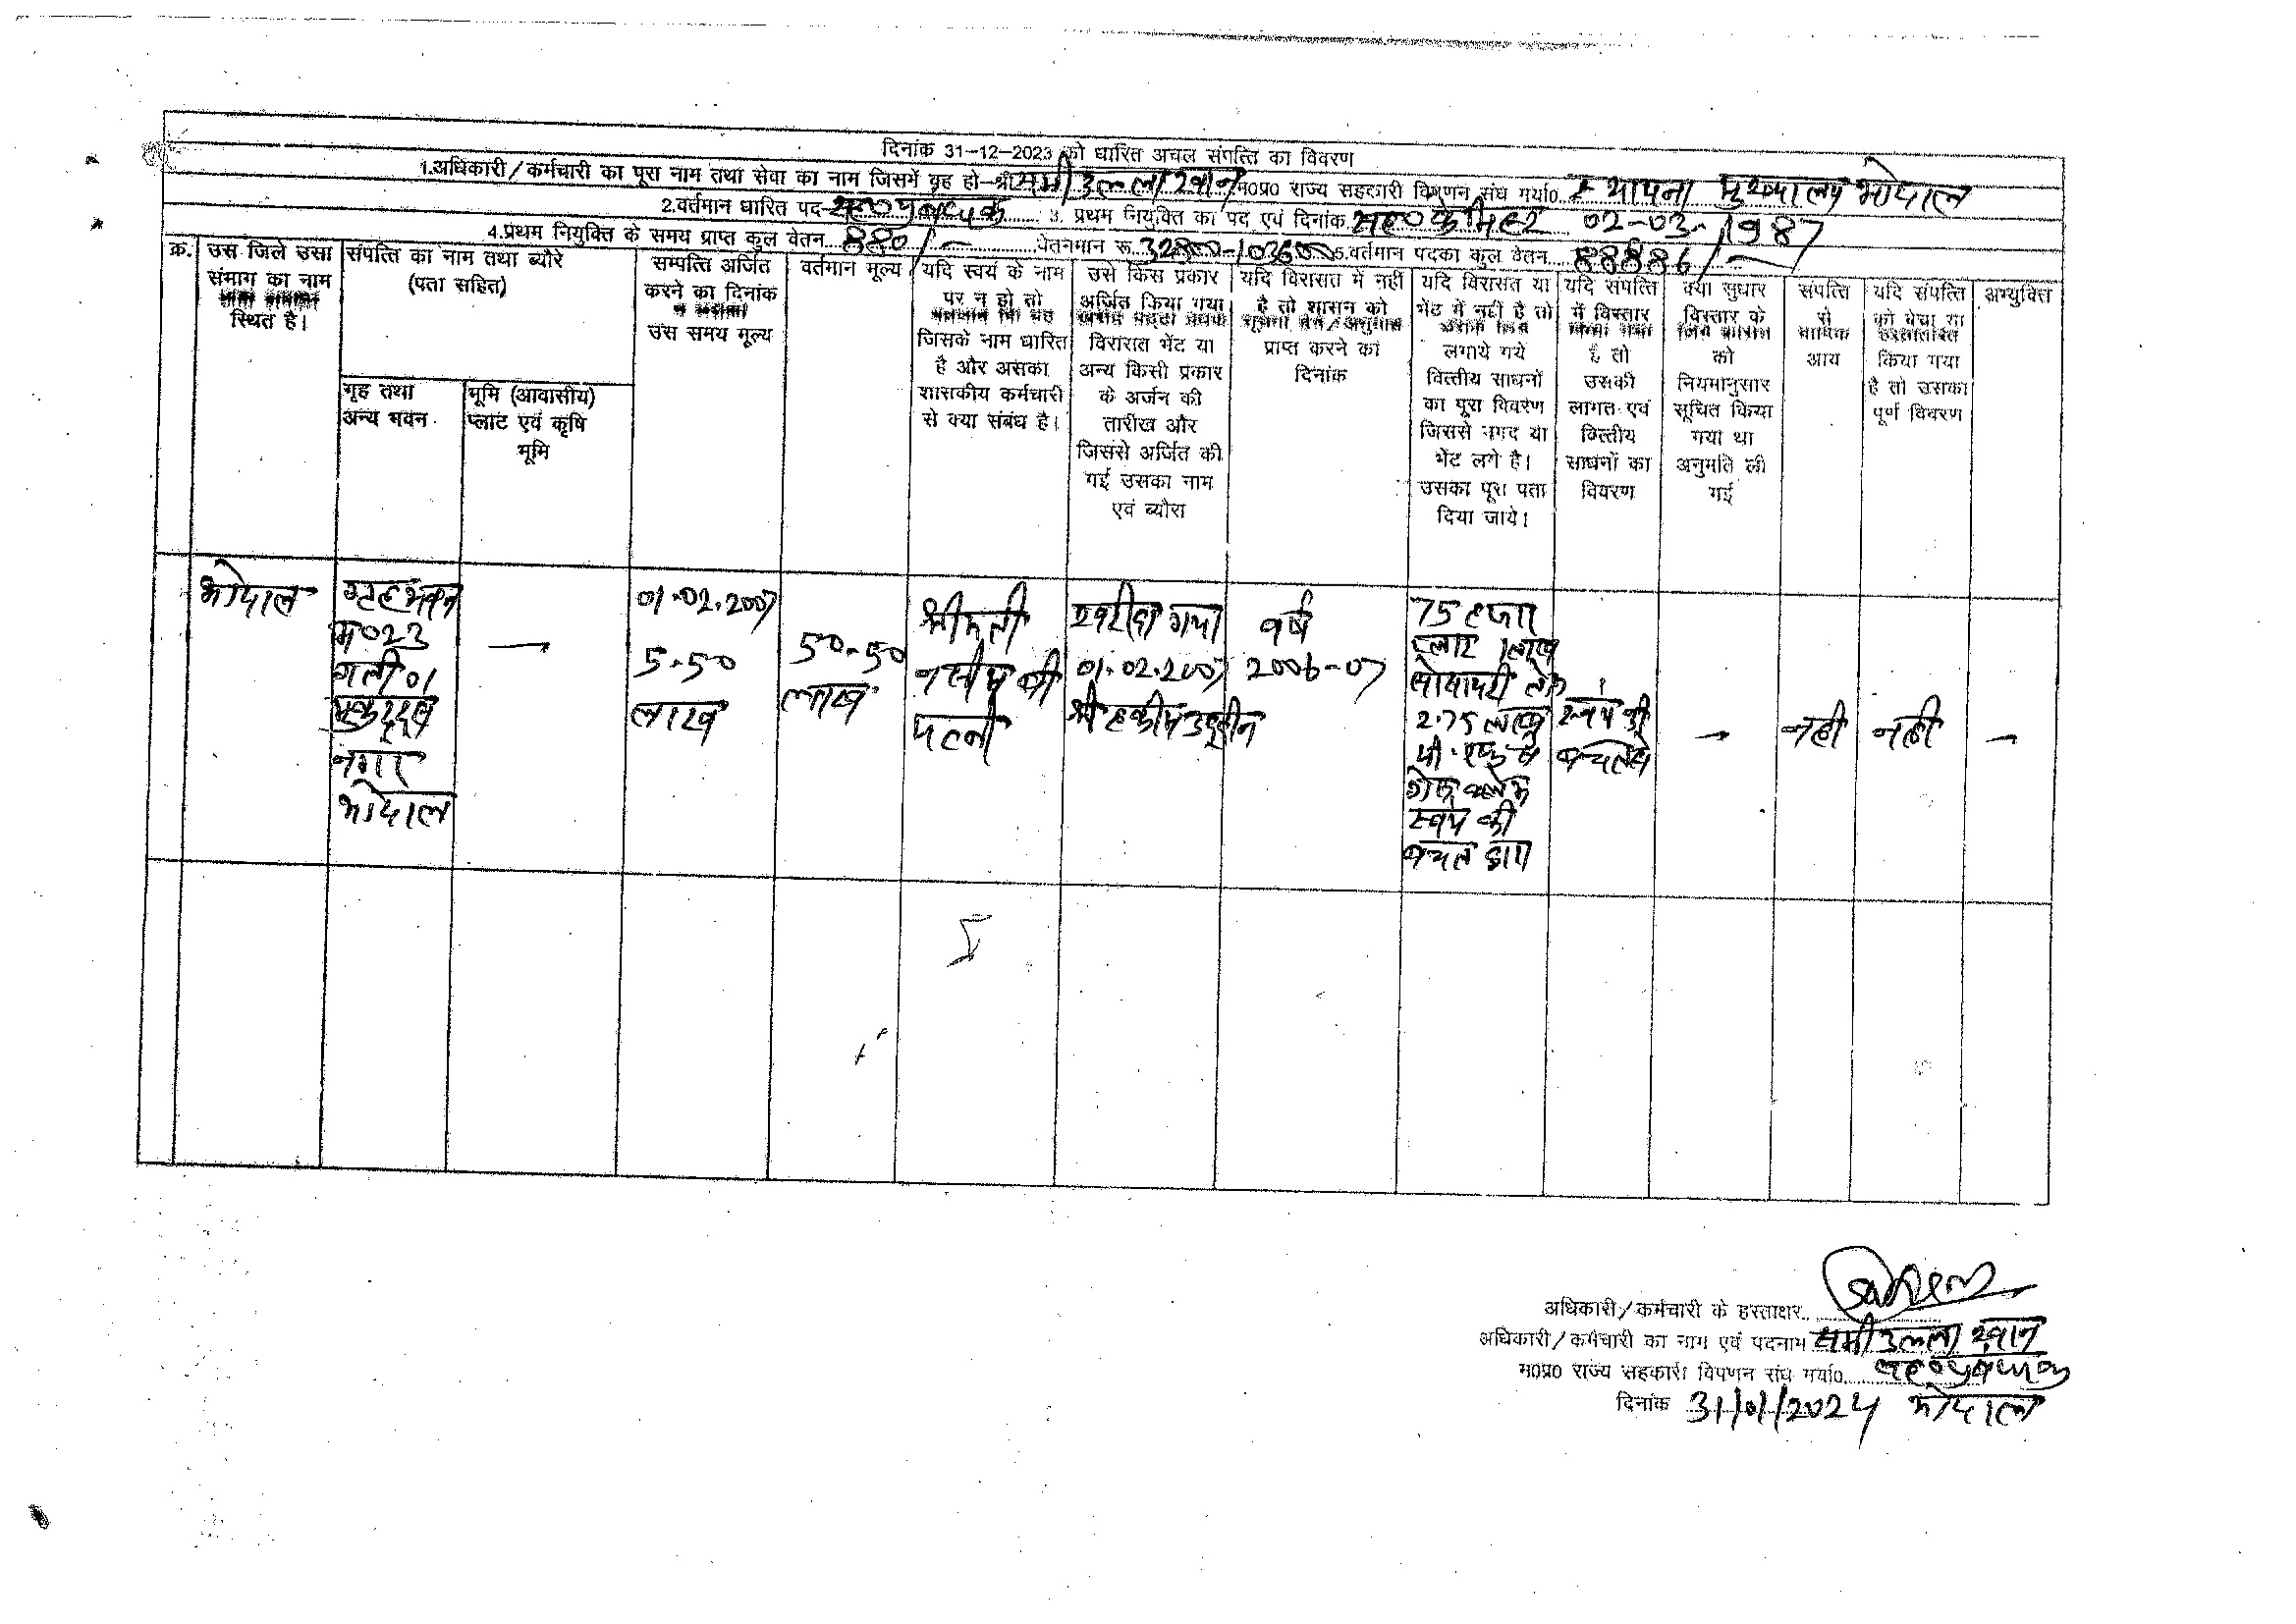 दिनांक 31-12-2023 को धारित अचल संपत्ति का विवरण
1.अधिकारी/कर्मचारी का पूरा नाम तथा सेवा का नाम जिसमें वह हो-श्री समी उल्ला खान म०प्र० राज्य सहकारी विपणन संघ मर्या० स्थापना मुख्यालय भोपाल
2.वर्तमान धारित पद- सह०प्रबंधक 3. प्रथम नियुक्ति का पद एवं दिनांक सह० केमिस्ट 02-03-1987
4.प्रथम नियुक्ति के समय प्राप्त कुल वेतन 880/- वेतनमान रू. 32800-103600 5.वर्तमान पदका कुल वेतन 88886/-
क्र.
उस जिले उसा
संभाग का नाम
स्थित है।
संपत्ति का नाम तथा ब्यौरे
(पता सहित)
गृह तथा
अन्य भवन
भूमि (आवासीय)
प्लाट एवं कृषि
भूमि
सम्पत्ति अर्जित
करने का दिनांक
उस समय मूल्य
वर्तमान मूल्य
यदि स्वयं के नाम
पर न हो तो
जिसके नाम धारित
है और असका
शासकीय कर्मचारी
से क्या संबंध है।
उसे किस प्रकार
अर्जित किया गया
विरासत भेंट या
अन्य किसी प्रकार
के अर्जन की
तारीख और
जिससे अर्जित की
गई उसका नाम
एवं ब्यौरा
यदि विरासत में नहीं
है तो शासन को
प्राप्त करने का
दिनांक
यदि विरासत या
भेंट में नहीं है तो
लगाये गये
वित्तीय साधनों
का पूरा विवरण
जिससे नगद या
भेंट लगे है।
उसका पूरा पता
दिया जाये।
यदि संपत्ति
में विस्तार
किया गया
है तो
उसकी
लागत एवं
वित्तीय
साधनों का
विवरण
क्या सुधार
विस्तार के
लिये शासन
को
नियमानुसार
सूचित किया
गया था
अनुमति ली
गई
संपत्ति
से
वार्षिक
आय
यदि संपत्ति
को बेचा या
हस्तांतरित
किया गया
है तो उसका
पूर्ण विवरण
अभ्युक्ति
भोपाल
गृह भवन
म०23
गली 01
नगर
भोपाल
—
01.02.2007
5-50
लाख
50-50
लाख
श्रीमती
पत्नी
खरीदा गया
01.02.2007
श्री हकीम उद्दीन
वर्ष
2006-07
75 हजार
1 लाख
2.75 लाख
स्वयं की
बचत द्वारा
स्वयं की
बचत से
—
नही
नही
—
अधिकारी/कर्मचारी के हस्ताक्षर
अधिकारी/कर्मचारी का नाम एवं पदनाम समी उल्ला खान
म०प्र० राज्य सहकारी विपणन संघ मर्या० सह०प्रबंधक
दिनांक 31/01/2024 भोपाल